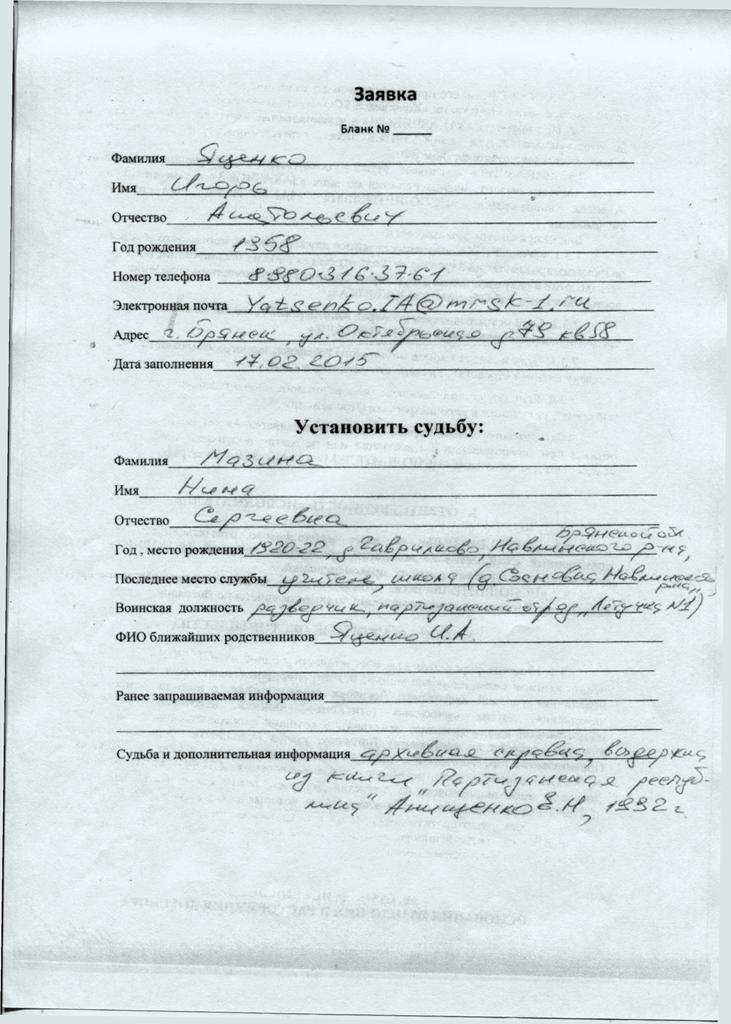 Заявка
Бланк № ______
Фамилия Яценко
Имя Игорь
Отчество Анатольевич
Год рождения 1958
Номер телефона 8.980.316.37.61
Электронная почта Yatsenko.IA@mrsk-1.ru
Адрес г. Брянск, ул. Октябрьская д 79 кв 58
Дата заполнения 17.02.2015
Установить судьбу:
Фамилия Мазина
Имя Нина
Отчество Сергеевна
Год , место рождения 1920-22, д Гаврилково, Навлинского р-на, Брянской обл
Последнее место службы учитель, школа (д. Сосновка Навлинского р-на
Воинская должность разведчик, партизанский отряд „Летучка №1")
ФИО ближайших родственников Яценко И.А.
Ранее запрашиваемая информация
Судьба и дополнительная информация архивная справка, выдержка
из книги „Партизанская респуб-
лика" Анищенко Е.Н, 1992 г.